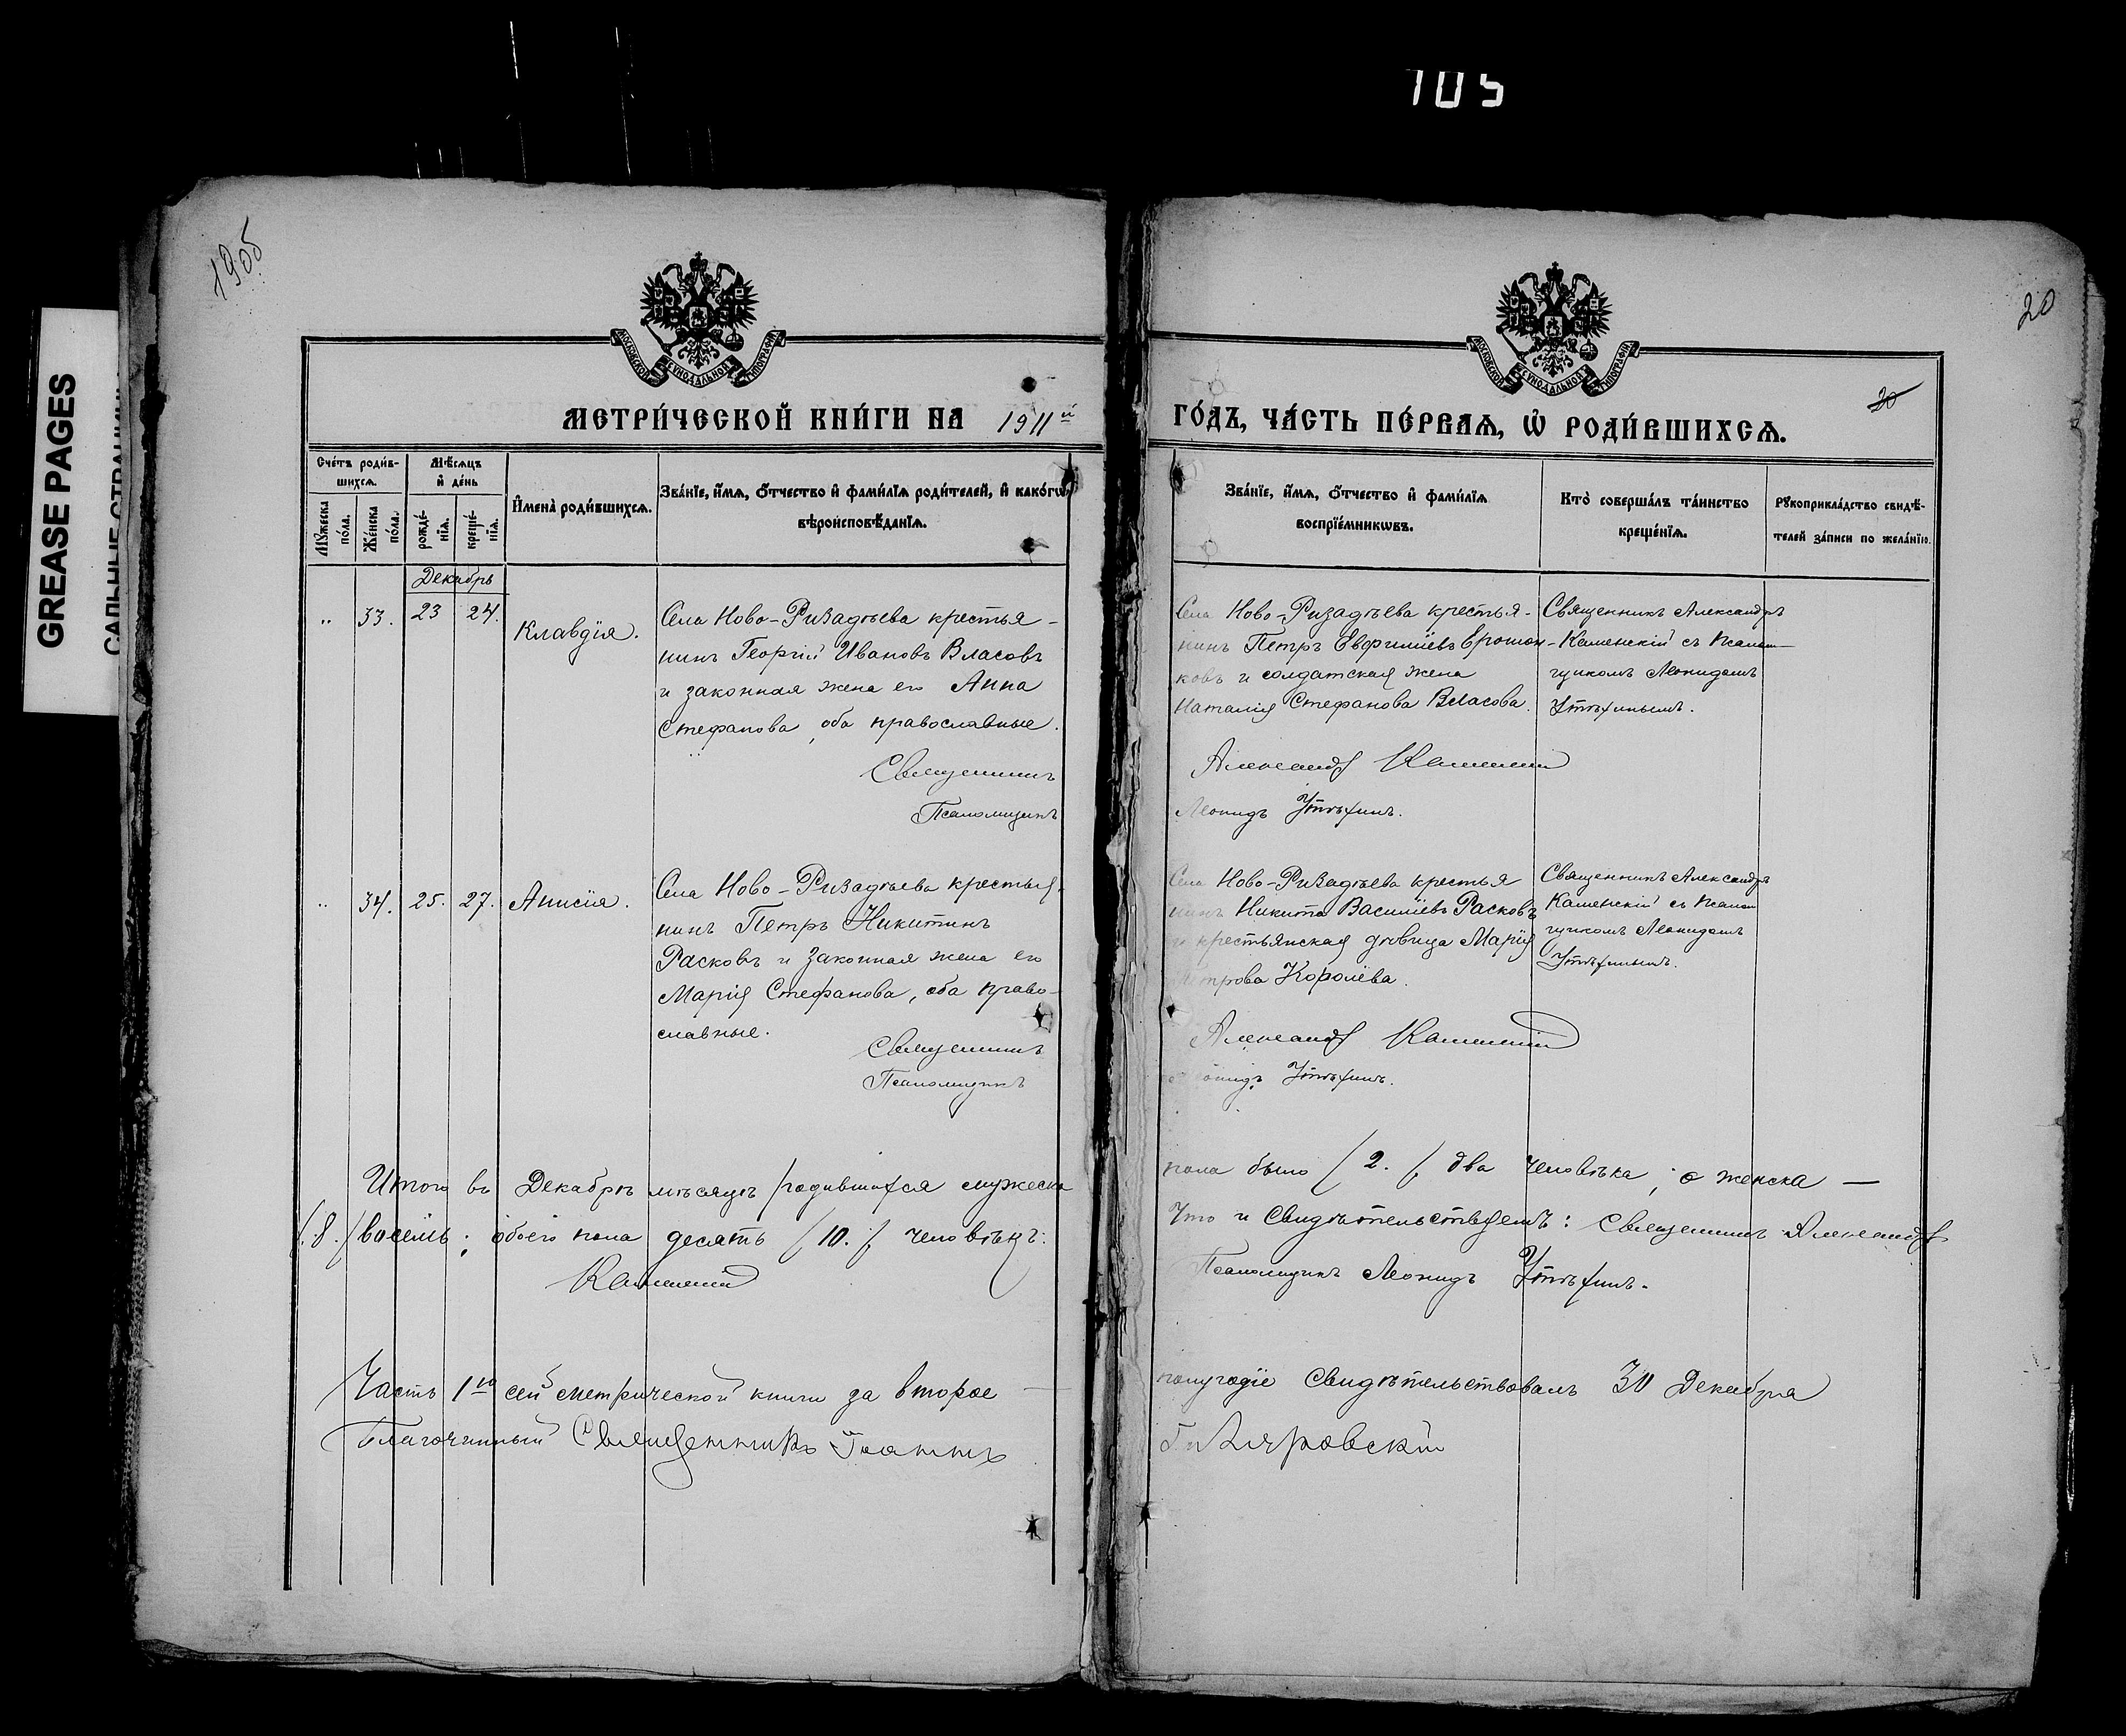 105
1905
20
GREASE PAGES
МОСКОВСКОЙ СѴНОДАЛЬНОЙ ТИПОГРАФІИ
МОСКОВСКОЙ СѴНОДАЛЬНОЙ ТИПОГРАФІИ
20
МЕТРИ́ЧЕСКОЙ КНИ́ГИ НА 1911й
ГО́ДЪ, ЧА́СТЬ ПЕ́РВАѦ, Ѡ҆ РОДИ́ВШИХСѦ.
Сче́тъ роди́в-
шихсѧ.
Мꙋ́жеска
по́ла.
Же́нска
по́ла.
Мѣ́сѧцъ
и҆ де́нь
рожде́-
нїѧ.
креще́-
нїѧ.
И҆мена̀ роди́вшихсѧ.
Зва́нїе, и҆́мѧ, ѻ҆́тчество и҆ фами́лїѧ роди́телей, и҆ како́гѡ
вѣроисповѣ́данїѧ.
Зва́нїе, и҆́мѧ, ѻ҆́тчество и҆ фами́лїѧ
воспрїе́мникѡвъ.
Кто̀ соверша́лъ та́инство
креще́нїѧ.
Рꙋкоприкла́дство свидѣ́-
телей за́писи по жела́нїю.
Декабрь
" 33. 23 24. Клавдія.
Села Ново-Ризадѣева крестья-
нинъ Георгій Ивановъ Власовъ
и законная жена его Анна
Стефанова, оба православные.
Священникъ
Псаломщикъ
Села Ново-Ризадѣева крестья-
нинъ Петръ Евфиміевъ Ерошен-
ковъ и солдатская жена
Наталія Стефанова Власова.
Священникъ Александръ
Каменскій съ Псалом-
щикомъ Леонидомъ
Утѣхинымъ.
Александръ Каменскій
Леонидъ Утѣхинъ.
" 34. 25. 27. Анисія.
Села Ново-Ризадѣева крестья-
нинъ Петръ Никитинъ
Расковъ и законная жена его
Марія Стефанова, оба право-
славные.
Священникъ
Псаломщикъ
Села Ново-Ризадѣева крестья
нинъ Никита Василіевъ Расковъ
и крестьянская дѣвица Марія
Петрова Королёва.
Священникъ Александръ
Каменскій съ Псалом
щикомъ Леонидомъ
Утѣхинымъ.
Александръ Каменскій
Леонидъ Утѣхинъ.
Итого въ Декабрѣ мѣсяцѣ родившихся мужеска
пола было (2.) два человѣка; а женска —
(8.) восемь; обоего пола десять (10.) человѣкъ.
Что и свидѣтельствуемъ: Священникъ Александръ
Каменскій
Псаломщикъ Леонидъ Утѣхинъ.
Часть 1ю сей метрической книги за второе —
полугодіе свидѣтельствовалъ 30 Декабря
Благочинный Священникъ Іоаннъ